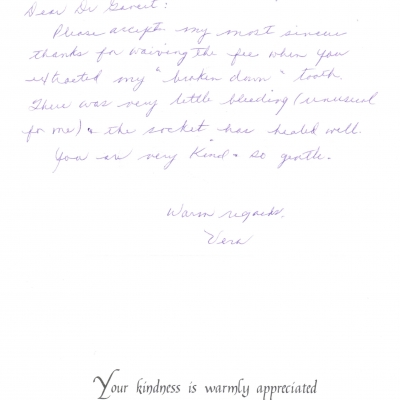 Dear Dr Gavert:
Please accept my most sincere
thanks for waiving the fee when you
extracted my "broken down" tooth.
There was very little bleeding (unusual
for me) & the socket has healed well.
You are very kind & so gentle.
Warm regards,
Vera
Your kindness is warmly appreciated